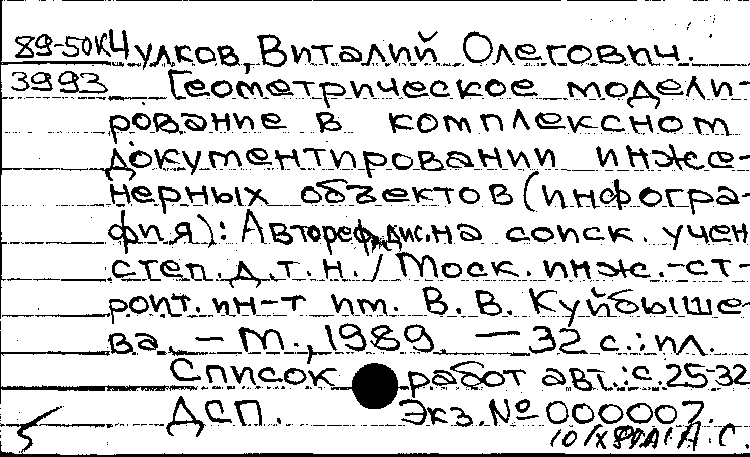 89-50К Чулков, Виталий Олегович.
3993 Геометрическое модели-
рование в комплексном
документировании инже-
нерных объектов (инфогра-
фия): Автореф. дис. на соиск. учен
степ. д. т. н. / Моск. инж.-ст-
роит. ин-т им. В. В. Куйбыше-
ва. – М., 1989. – 32 с.: ил.
Список работ авт.: с. 25-32
ДСП. Экз. № 000007.